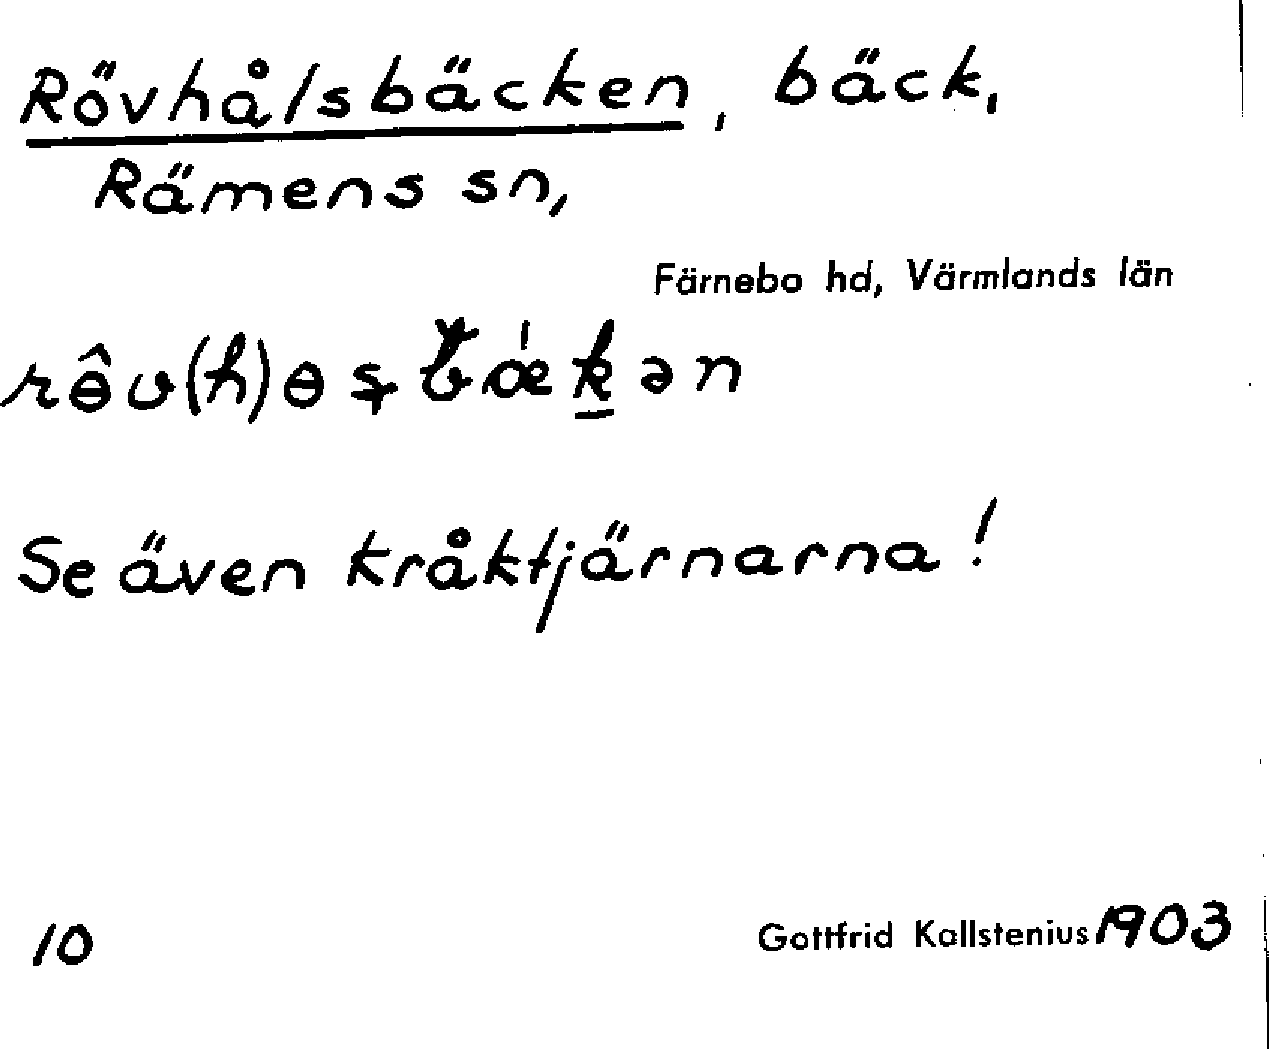 Rövhålsbäcken, bäck,
Rämens sn,
Färnebo hd, Värmlands län
Se även Kråktjärnarna!
10 Gottfrid Kallstenius 1903